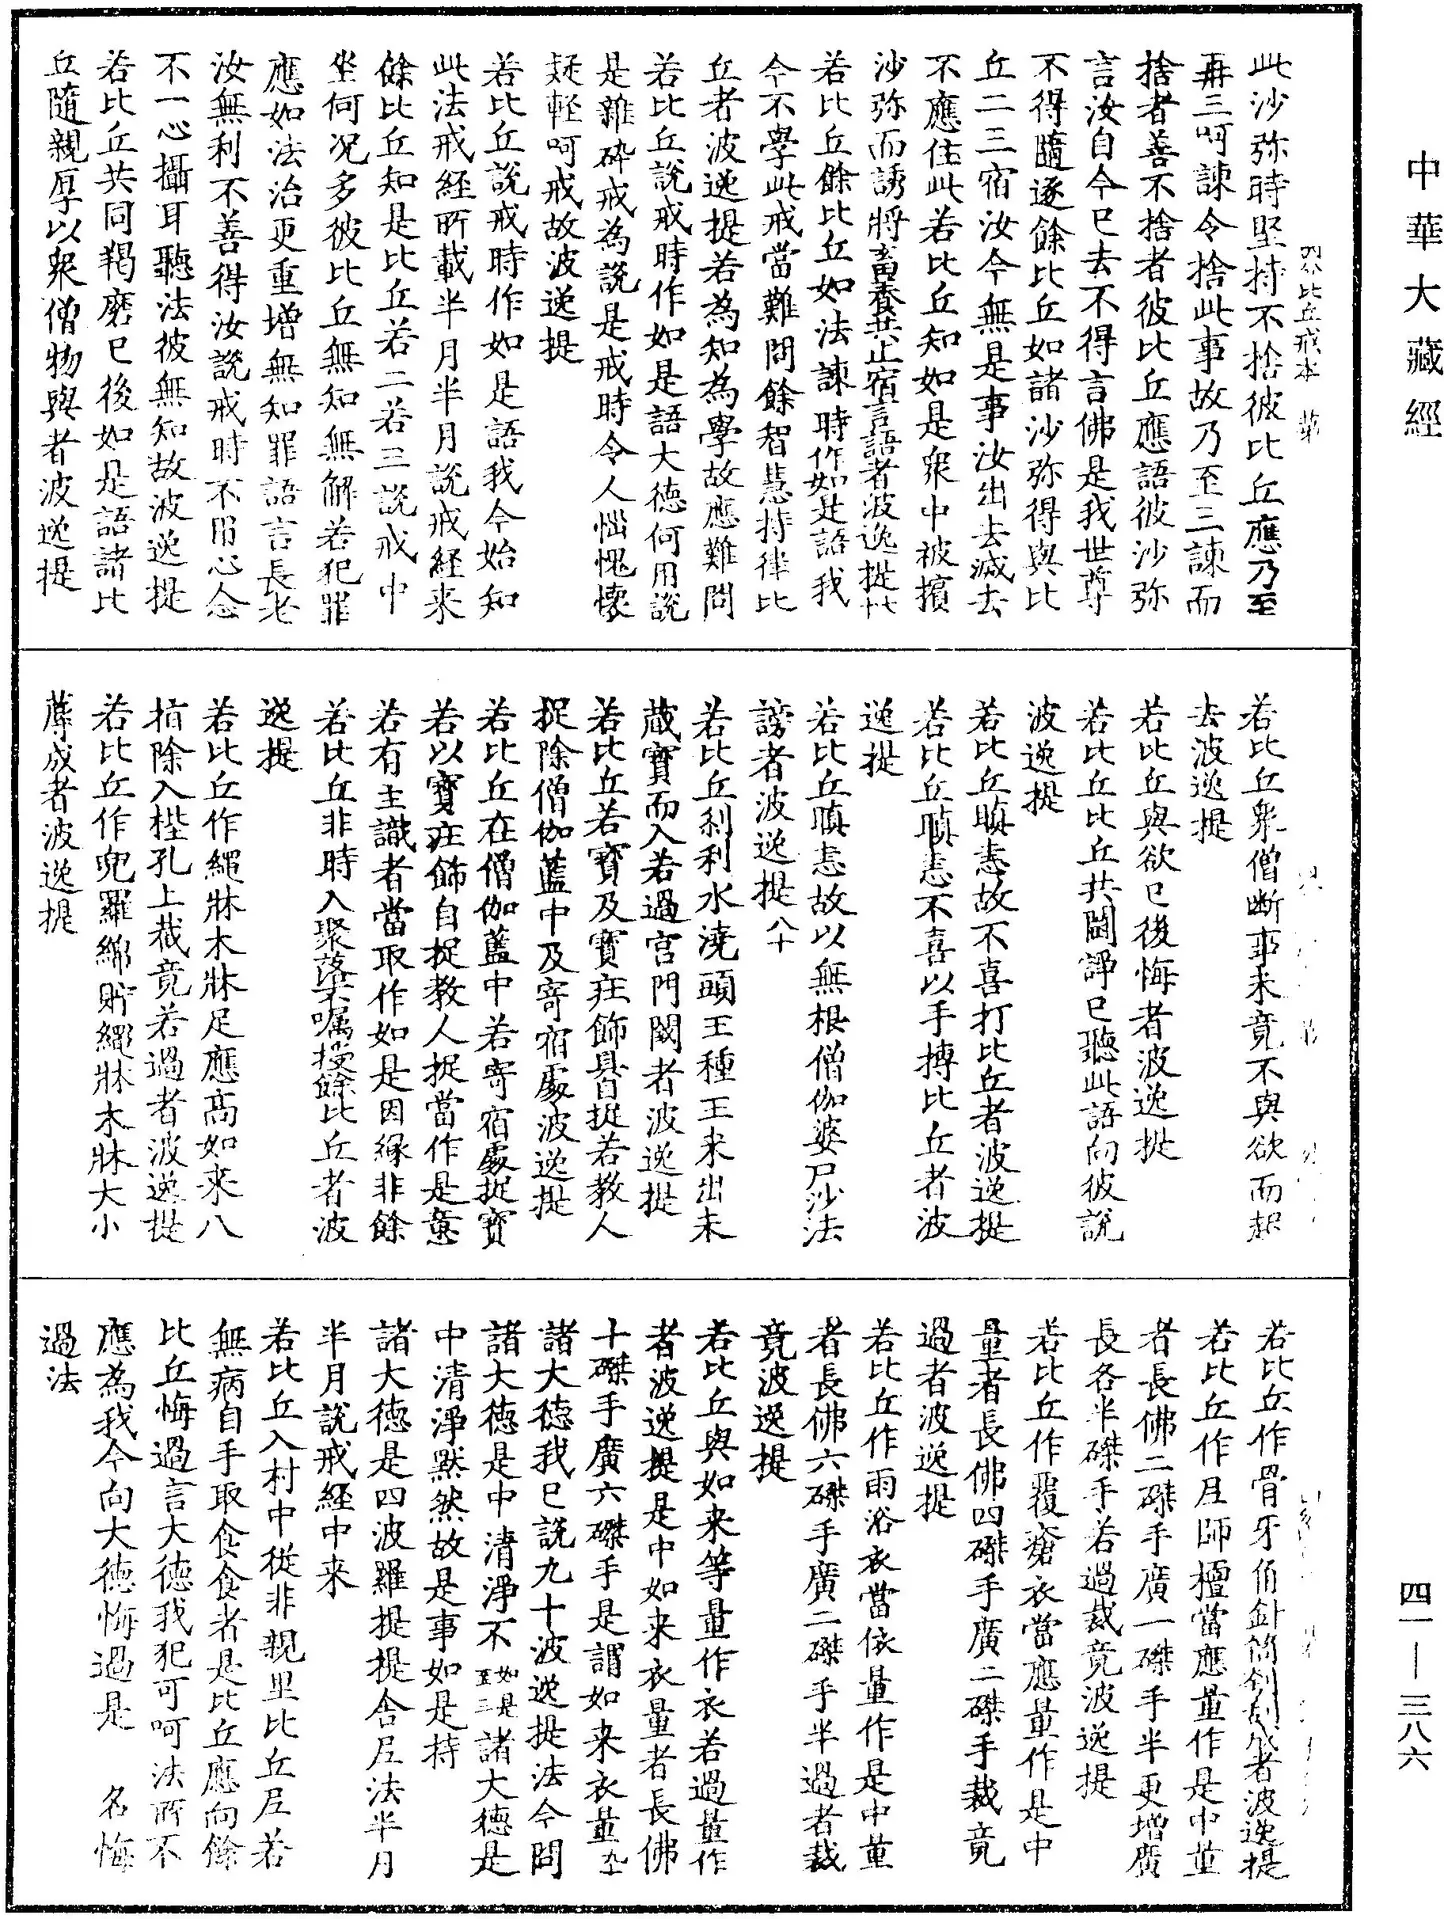 中華大藏經
四分比丘戒本
此沙弥時堅持不捨彼比丘應乃至
再三呵諫令捨此事故乃至三諫而
捨者善不捨者彼比丘應語彼沙弥
言汝自今已去不得言佛是我世尊
不得隨逐餘比丘如諸沙弥得與比
丘二三宿汝今無是事汝出去滅去
不應住此若比丘知如是衆中被擯
沙弥而誘將畜養共止宿言語者波逸提
若比丘餘比丘如法諫時作如是語我
今不學此戒當難問餘智慧持律比
丘者波逸提若為知為學故應難問
若比丘說戒時作如是語大德何用說
是雜碎戒為說是戒時令人惱愧懷
疑輕呵戒故波逸提
若比丘說戒時作如是語我今始知
此法戒經所載半月半月說戒經來
餘比丘知是比丘若二若三說戒中
坐何況多彼比丘無知無解若犯罪
應如法治更重增無知罪語言長老
汝無利不善得汝說戒時不用心念
不一心攝耳聽法彼無知故波逸提
若比丘共同羯磨已後如是語諸比
丘隨親厚以衆僧物與者波逸提
若比丘衆僧斷事未竟不與欲而起
去波逸提
若比丘與欲已後悔者波逸提
若比丘比丘共鬪諍已聽此語向彼說
波逸提
若比丘瞋恚故不喜打比丘者波逸提
若比丘瞋恚不喜以手搏比丘者波
逸提
若比丘瞋恚故以無根僧伽婆尸沙法
謗者波逸提八十
若比丘刹利水澆頭王種王未出未
藏寶而入若過宮門閾者波逸提
若比丘若寶及寶莊飾具自捉若教人
捉除僧伽藍中及寄宿處波逸提
若比丘在僧伽藍中若寄宿處捉寶
若以寶莊飾自捉教人捉當作是意
若有主識者當取作如是因緣非餘
若比丘非時入聚落不囑授餘比丘者波
逸提
若比丘作繩牀木牀足應高如來八
指除入梐孔上截竟若過者波逸提
若比丘作兜羅綿貯繩牀木牀大小
蓐成者波逸提
若比丘作骨牙角針筒刳刮成者波逸提
若比丘作尼師檀當應量作是中量
者長佛二磔手廣一磔手半更增廣
長各半磔手若過裁竟波逸提
若比丘作覆瘡衣當應量作是中
量者長佛四磔手廣二磔手裁竟
過者波逸提
若比丘作雨浴衣當依量作是中量
者長佛六磔手廣二磔手半過者裁
竟波逸提
若比丘與如來等量作衣若過量作
者波逸提是中如來衣量者長佛
十磔手廣六磔手是謂如來衣量九十
諸大德我已說九十波逸提法今問
諸大德是中清淨不如是至三諸大德是
中清淨默然故是事如是持
諸大德是四波羅提提舍尼法半月
半月說戒經中來
若比丘入村中從非親里比丘尼若
無病自手取食食者是比丘應向餘
比丘悔過言大德我犯可呵法所不
應為我今向大德悔過是名悔
過法
四一—三八六